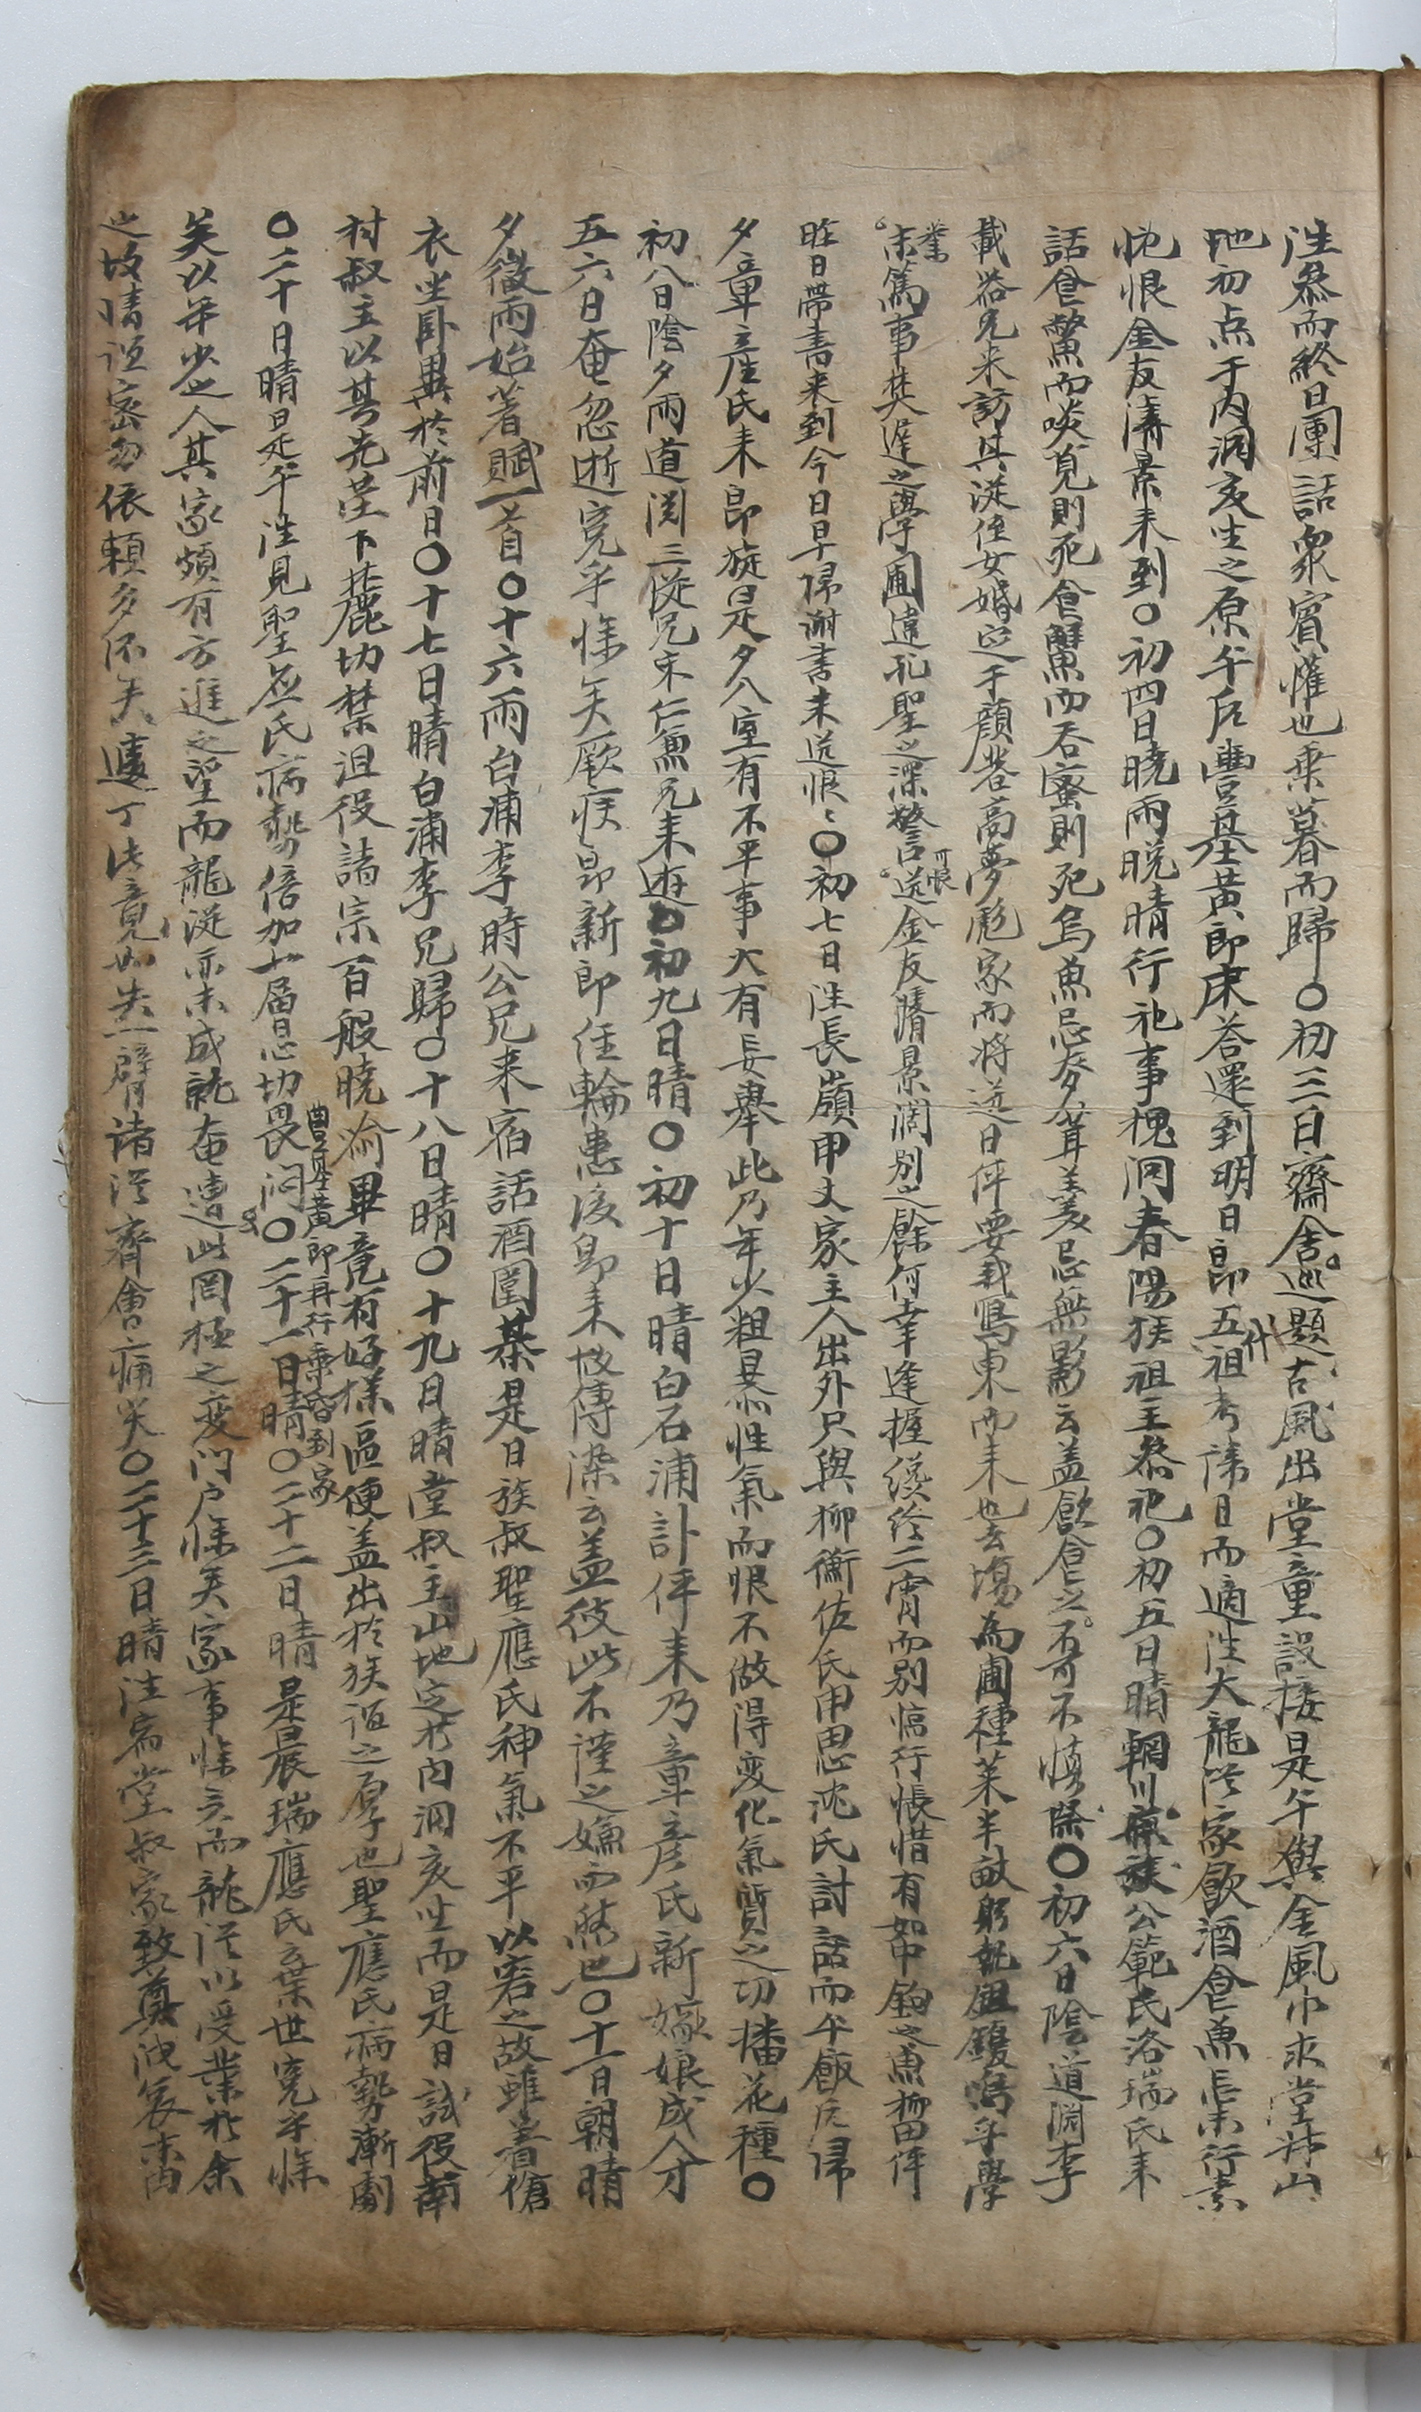 往參而終日團話衆賓懽也乘暮而歸〇初三日齋舍巡題古風出堂童設接是午與金風巾永堂北山
地初点于内洞亥坐之原午后豊基黃郎來答還到明日卽五代祖考諱日而適往大龍從家飮酒食魚未行素
忱恨金友溝景来到〇初四日曉雨晩晴行祀事槐洞春陽族祖主參祀〇初五日晴輞川族公範氏洛瑞氏来
話食鱉而啖莧則死食蟹而吞蜜則死烏魚忌麥茸羹忌無影云盖飮食之不可不愼〇初六日陰道淵李
載器兄来訪其從侄女婚定于顔巷高夢彪家而將送日伻要我鴈東而来也去塲爲圃種菜半畝躬執鋤钁嗚乎學
業未篤事樊遲之學圃違孔聖之深警可恨送金友晴景濶別之餘何幸逢握纔經二宵而別悵惜有如中鉤之魚柳田伻
昨日帶書来到今日早歸謝書未送恨〻〇初七日往長嶺甲丈家主人出外只與柳衡佐氏申思沈氏討話而午飯后歸
夕章彦氏来卽旋是夕入室有不平事大有妄擧此乃年少粗暴性氣而恨不做得变化氣質之功播花種〇
初八日陰夕雨道淵三從兄宋仁魚兄来遊〇初九日晴〇初十日晴白石浦訃伻来乃章彦氏新嫁娘成人才
五六日奄忽逝寃乎慘矣厥疾卽新郎任輪患後卽来故傳染云盖彼此不謹之嫌而然也〇十一日朝晴
夕微雨始著賦一首〇十六雨白浦李時公兄来宿話酒圍棊是日族叔聖應氏神氣不平以寒之故雖着傖
衣坐卧異於前日〇十七日晴白浦李兄歸〇十八日晴〇十九日晴堂叔主山地定於内洞亥坐而是日試役南
村叔主以其先塋下麓切禁沮役諸宗百般曉渝畢竟有好樣區便盖出於族誼之厚也聖應氏病勢漸劇
〇二十日晴是午往見聖應氏病勢倍加一層忌切畏悶〇豊基黃郎再行乘昏到家二十一日晴〇二十二日晴是晨瑞應氏棄世寃乎慘
矣以年少之人其家頗有方進之望而龍從亦未成就奄遭此罔極之变门戶慘矣家事慘矣而龍從以受業於余
之故情誼密勿依賴多不矣遽丁此竟如失一臂諸從齊會痛哭〇二十三日晴往寓堂叔家致奠洩哀未酉